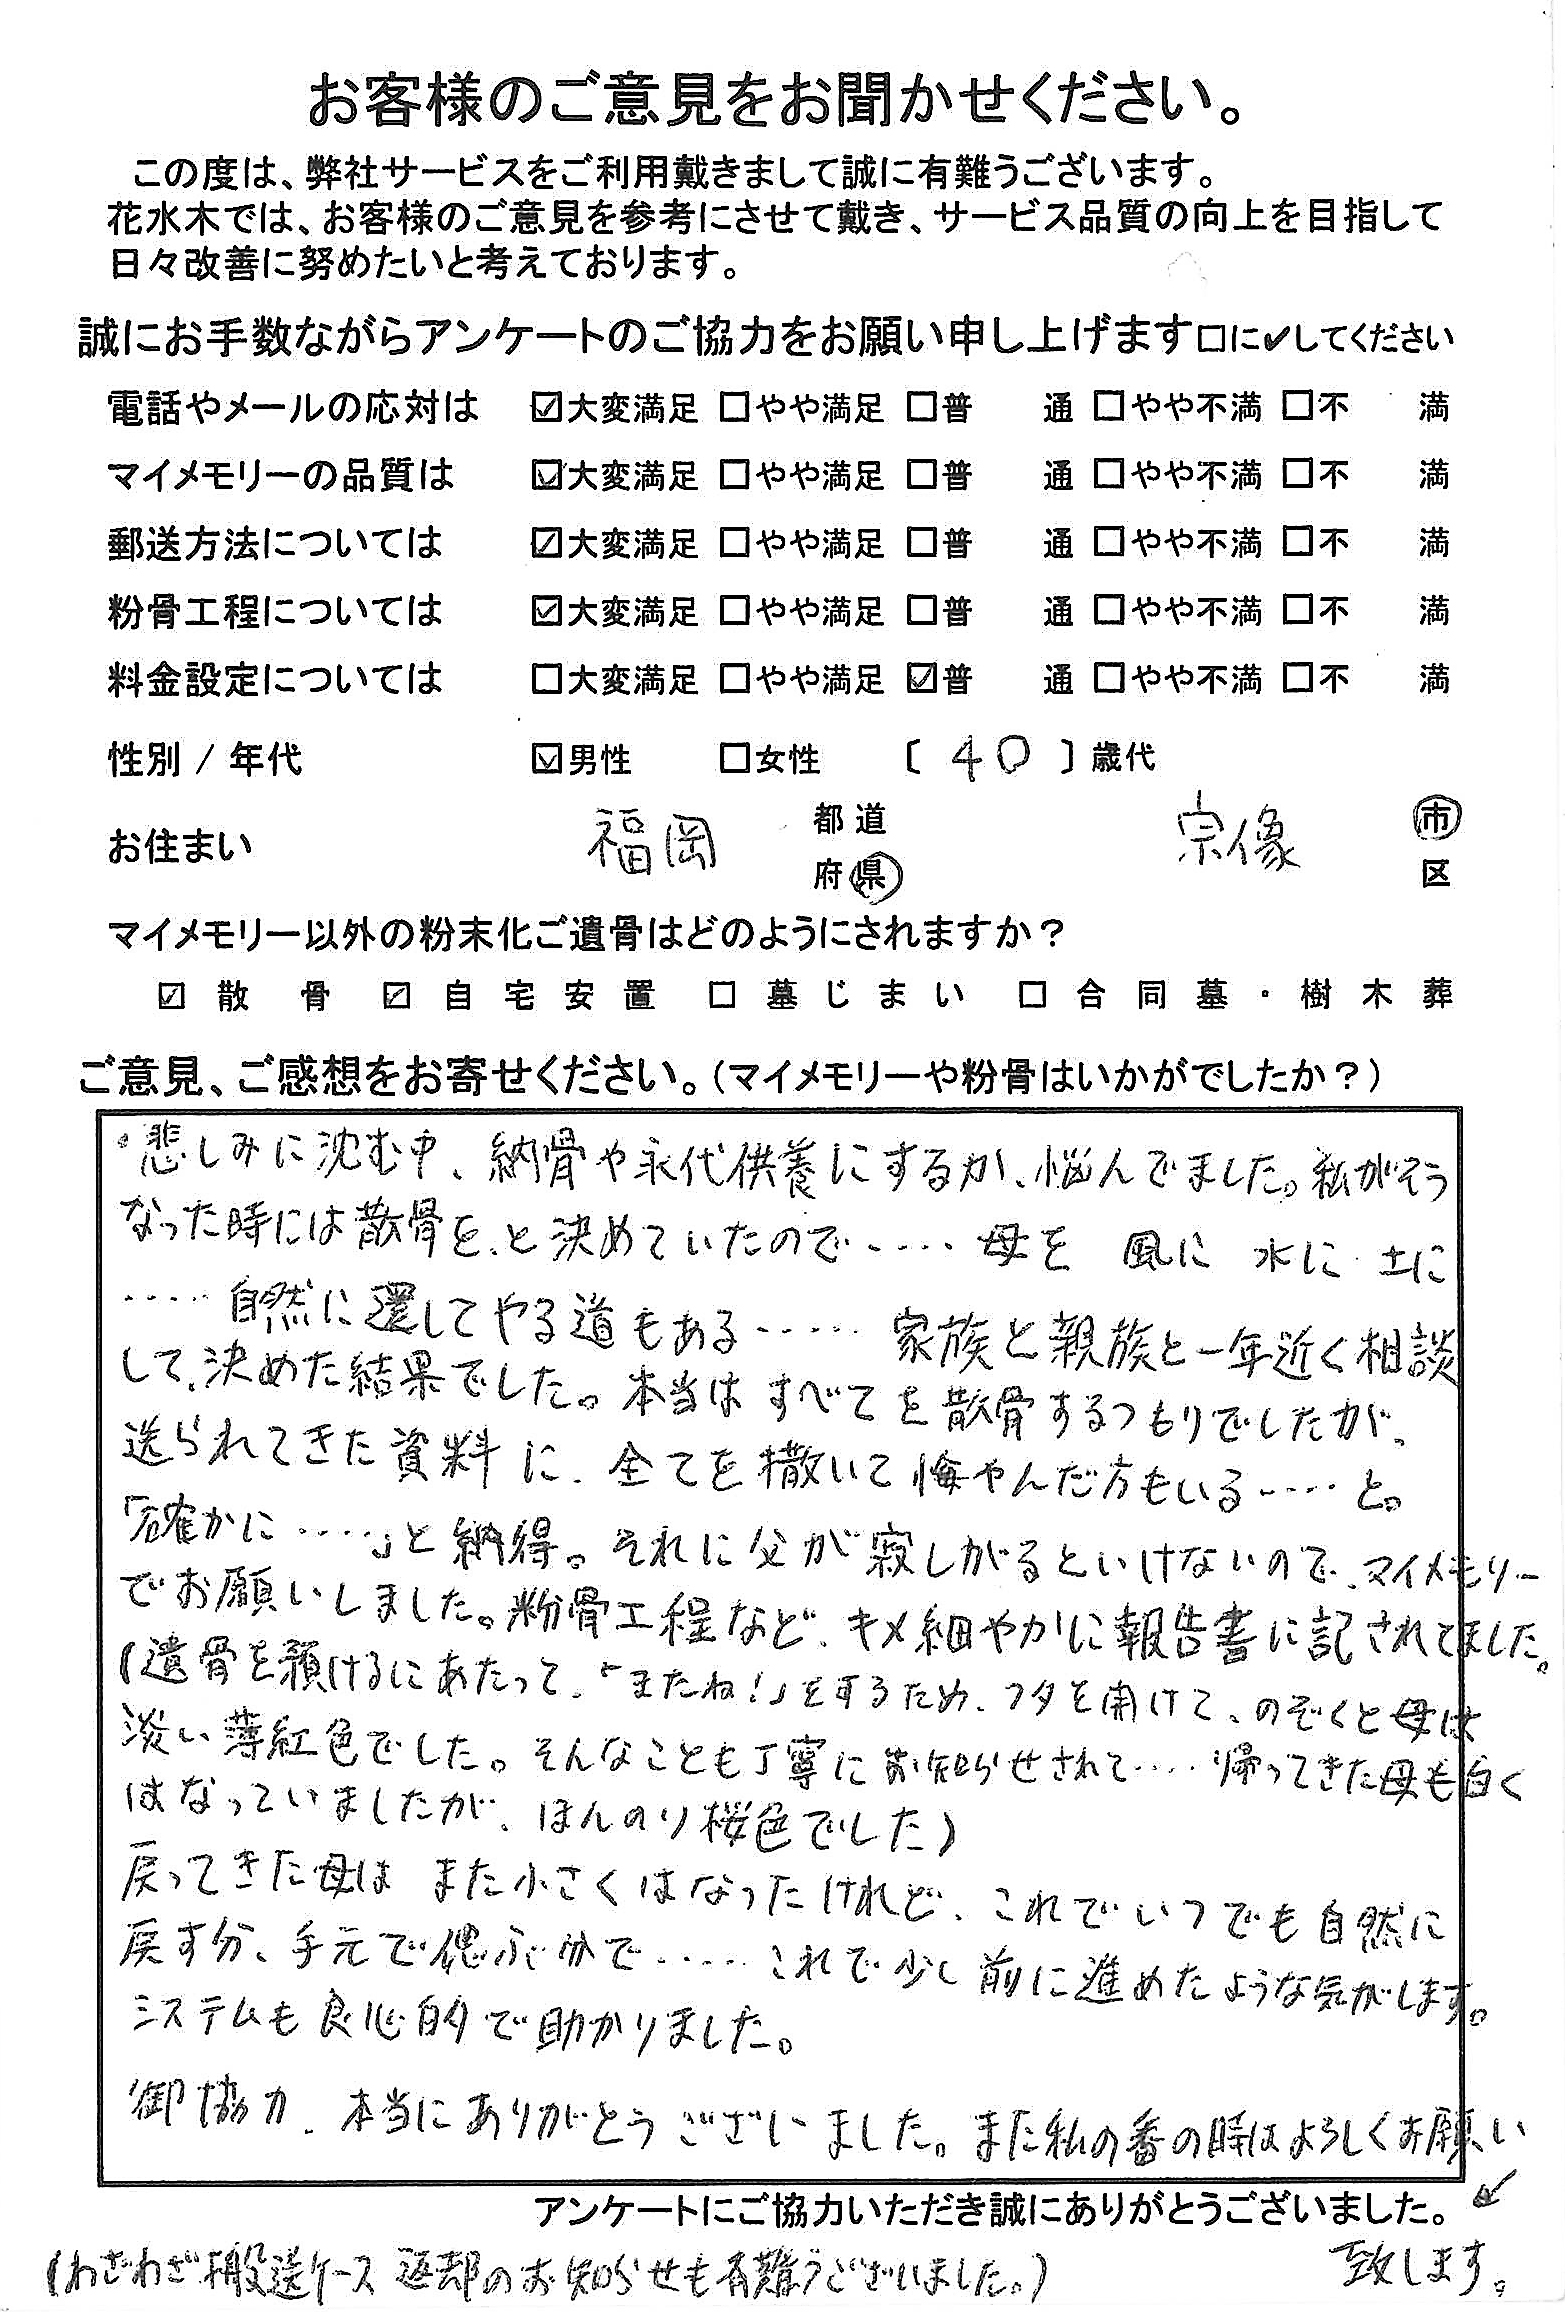 お客様のご意見をお聞かせください。
この度は、弊社サービスをご利用戴きまして誠に有難うございます。
花水木では、お客様のご意見を参考にさせて戴き、サービス品質の向上を目指して
日々改善に努めたいと考えております。
誠にお手数ながらアンケートのご協力をお願い申し上げます□に✓してください
電話やメールの応対は ☑大変満足 □やや満足 □普 通 □やや不満 □不 満
マイメモリーの品質は ☑大変満足 □やや満足 □普 通 □やや不満 □不 満
郵送方法については ☑大変満足 □やや満足 □普 通 □やや不満 □不 満
粉骨工程については ☑大変満足 □やや満足 □普 通 □やや不満 □不 満
料金設定については □大変満足 □やや満足 ☑普 通 □やや不満 □不 満
性別 / 年代 ☑男性 □女性 〔 40 〕歳代
お住まい 福岡 都道府県 宗像 市区
マイメモリー以外の粉末化ご遺骨はどのようにされますか？
☑ 散骨 ☑ 自宅安置 □ 墓じまい □ 合同墓・樹木葬
ご意見、ご感想をお寄せください。（マイメモリーや粉骨はいかがでしたか？）
・悲しみに沈む中、納骨や永代供養にするか、悩んでました。私がそう
なった時には散骨を、と決めていたので‥‥ 母を 風に 水に 土に
‥‥自然に還してやる道もある‥‥‥ 家族と親族と一年近く相談
して、決めた結果でした。本当はすべてを散骨するつもりでしたが、
送られてきた資料に、全てを撒いて悔やんだ方もいる‥‥と。
「確かに‥‥」と納得。それに父が寂しがるといけないので、マイメモリー
でお願いしました。粉骨工程など、キメ細やかに報告書に記されてました。
(遺骨を預けるにあたって、「またね！」をするため、フタを開けて、のぞくと母は
淡い薄紅色でした。そんなことも丁寧にお知らせされて‥‥帰ってきた母も白く
はなっていましたが、ほんのり桜色でした)
戻ってきた母は また小さくはなったけれど、これでいつでも自然に
戻す分、手元で偲ぶ分で‥‥‥これで少し前に進めたような気がします。
システムも良心的で助かりました。
御協力、本当にありがとうございました。また私の番の時はよろしくお願い
アンケートにご協力いただき誠にありがとうございました。 ↙
致します。
(わざわざ搬送ケース返却のお知らせも有難うございました。)